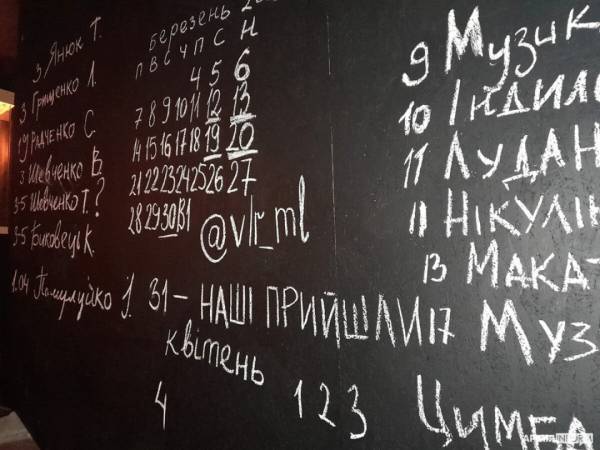 3 Янюк Т.
3 Грищенко Л.
19 Радченко С
3 Шевченко В
3-5 Шевченко Т.?
3-5 Биковець К.
1.04 І.
Березень 2
П В С Ч П С Н
4 5 6
7 8 9 10 11 12 13
14 15 16 17 18 19 20
21 22 23 24 25 26 27
28 29 30 31
@vlr_ml
31 - НАШІ ПРИЙШЛИ
квітень
1 2 3
4
9 Музик
10 Індил
11 Лудан
11 Нікулін
13 Мака
17 Муз
Цимба